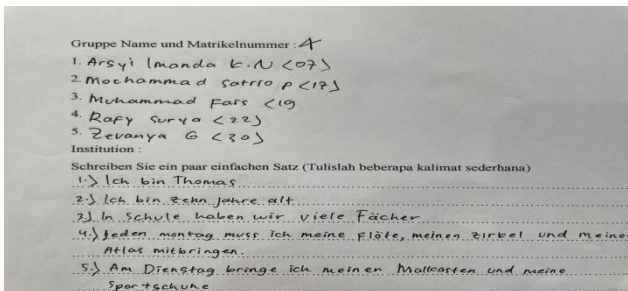 Gruppe Name und Matrikelnummer : 4
1. Arsyi Imanda K.N <07>
2. Mochammad Satrio P <17>
3. Muhammad Fais <19
4. Rafy Surya <22>
5. Zevanya G <30>
Institution :
Schreiben Sie ein paar einfachen Satz (Tulislah beberapa kalimat sederhana)
1.> Ich bin Thomas
2.> Ich bin zehn Jahre alt
3.> In Schule haben wir viele Fächer
4.> Jeden montag muss ich meine flöte, meinen zirkel und meinen
Atlas mitbringen.
5.> Am Dienstag bringe ich meinen Mallcasten und meine
Sportschuhe